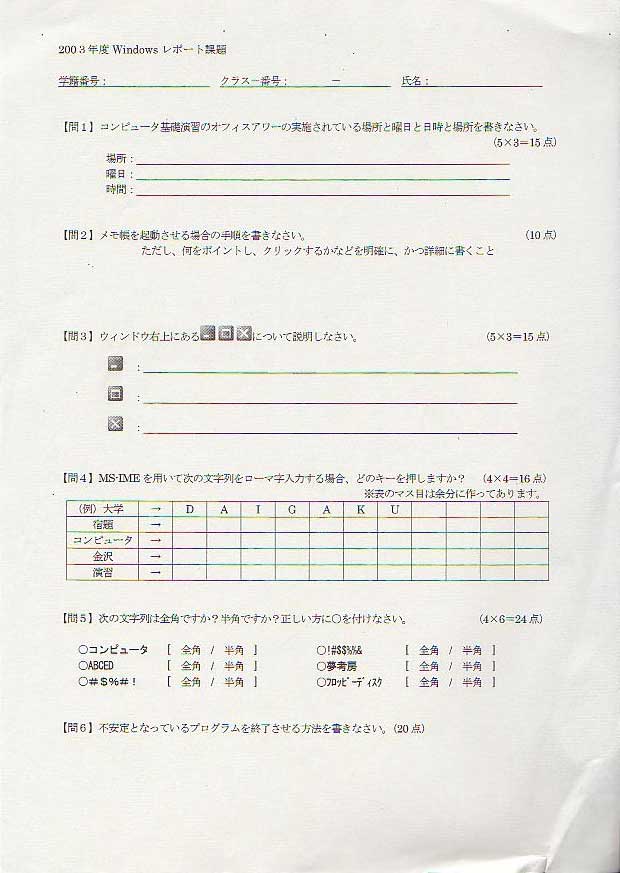 2003年度 Windows レポート課題
学籍番号： クラス－番号： － 氏名：
【問１】コンピュータ基礎演習のオフィスアワーの実施されている場所と曜日と日時と場所を書きなさい。
(5×3＝15点)
場所：
曜日：
時間：
【問２】メモ帳を起動させる場合の手順を書きなさい。 (10点)
ただし、何をポイントし、クリックするかなどを明確に、かつ詳細に書くこと
【問３】ウィンドウ右上にあるについて説明しなさい。 (5×3＝15点)
：
：
：
【問４】MS-IMEを用いて次の文字列をローマ字入力する場合、どのキーを押しますか？ (4×4＝16点)
※表のマス目は余分に作ってあります。
（例）大学 → D A I G A K U
宿題 →
コンピュータ →
金沢 →
演習 →
【問５】次の文字列は全角ですか？半角ですか？正しい方に○を付けなさい。 (4×6＝24点)
○コンピュータ [ 全角 / 半角 ] ○!#$$%%& [ 全角 / 半角 ]
○ABCED [ 全角 / 半角 ] ○夢考房 [ 全角 / 半角 ]
○＃＄％＃！ [ 全角 / 半角 ] ○ﾌﾛｯﾋﾟｰﾃﾞｨｽｸ [ 全角 / 半角 ]
【問６】不安定となっているプログラムを終了させる方法を書きなさい。(20点)